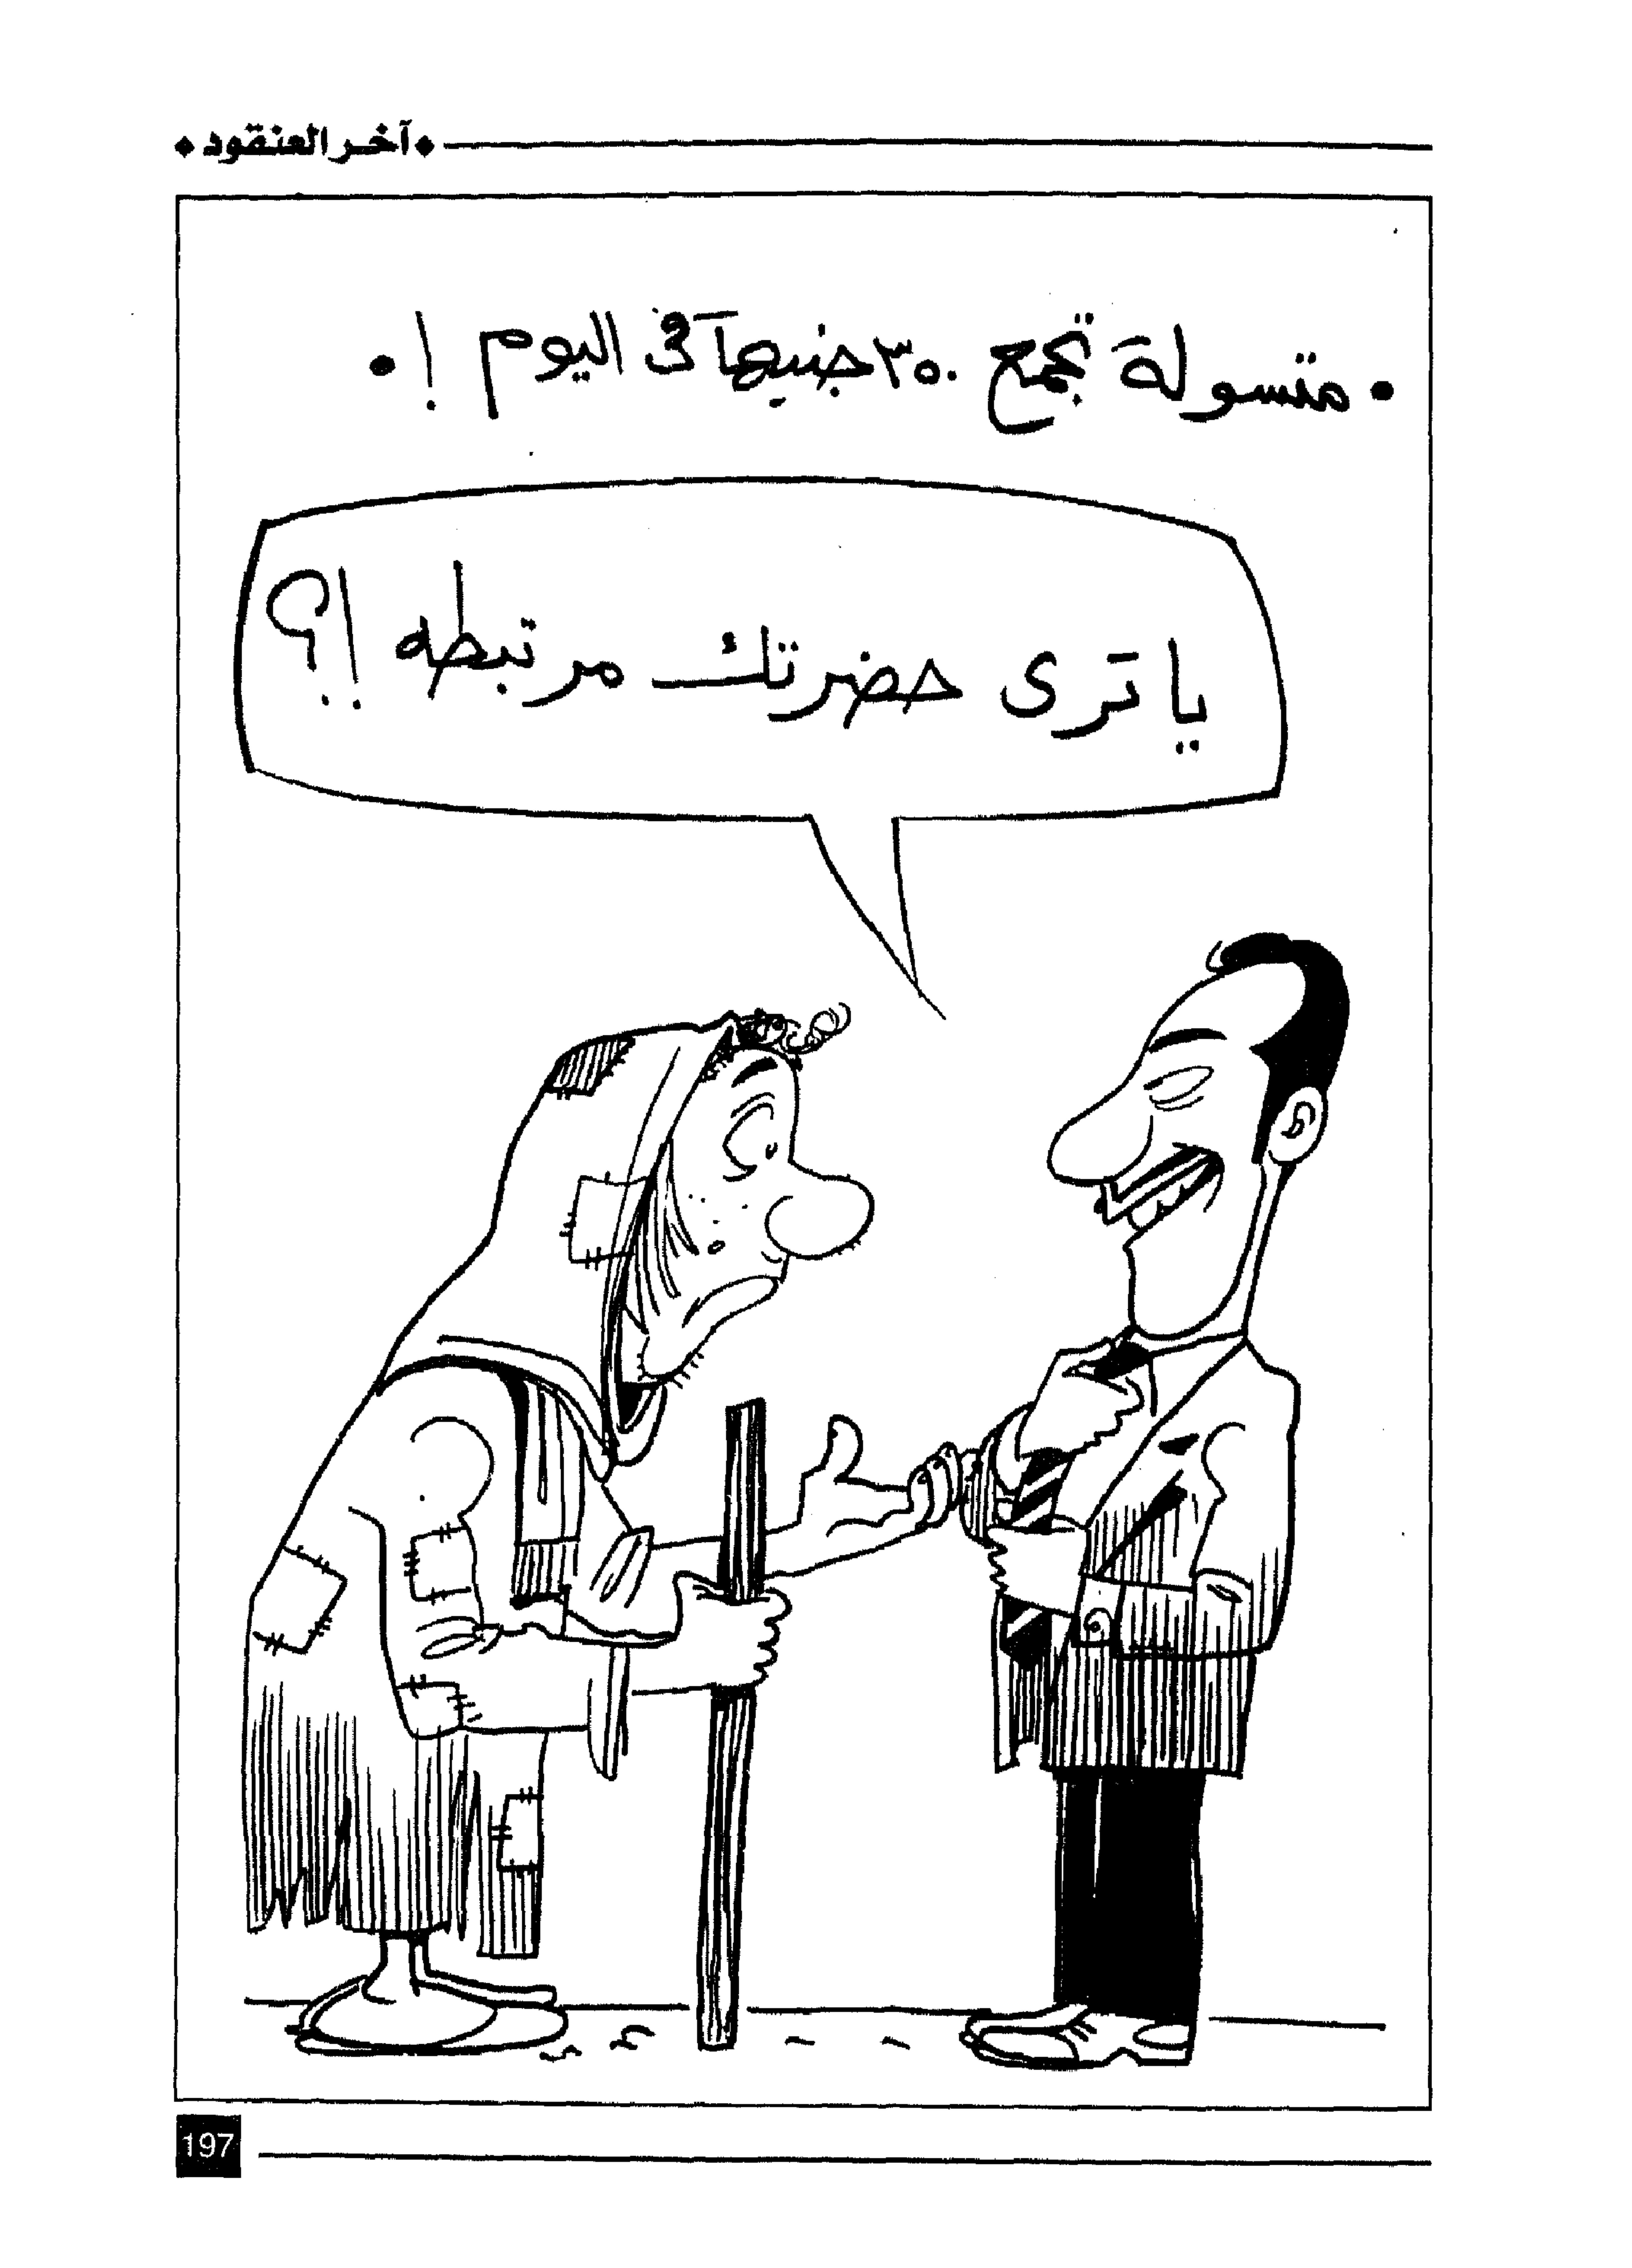 • آخر العنقود •
• متسولة تجمع ٣٥٠ جنيهاً فى اليوم ! •
يا ترى حضرتك مرتبطه !؟
197